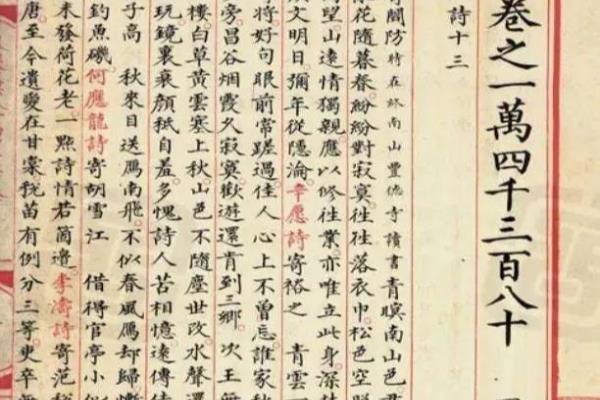 卷之一萬四千三百八十
詩十三
關防時在終南山豐德寺讀書 青暝南山邑君
花隨暮春紛紛對寂寞往往落衣巾松色空
望山遠情獨親應以修往業亦唯立此身深林
文明日彌年從隱淪辛愿詩寄裕之 青雲一
將好句眼前常蹉過佳人心上不曾忘誰家秋
旁昌谷烟霞久寂寞歡遊還肯到三鄉 次王無
樓白草黃雲塞上秋山色不隨塵世改水聲還
玩鏡裏衰顏秖自羞多愧詩人苦相憶遠傳佳
子高 秋來目送鴈南飛不似春風鴈却歸慚
釣魚磯何應龍詩寄胡雪江 借得官亭小似
未發荷花老一點詩情若箇邊李濤詩寄范秘
唐至今遺愛在甘棠秔苗有例分三等更卒無